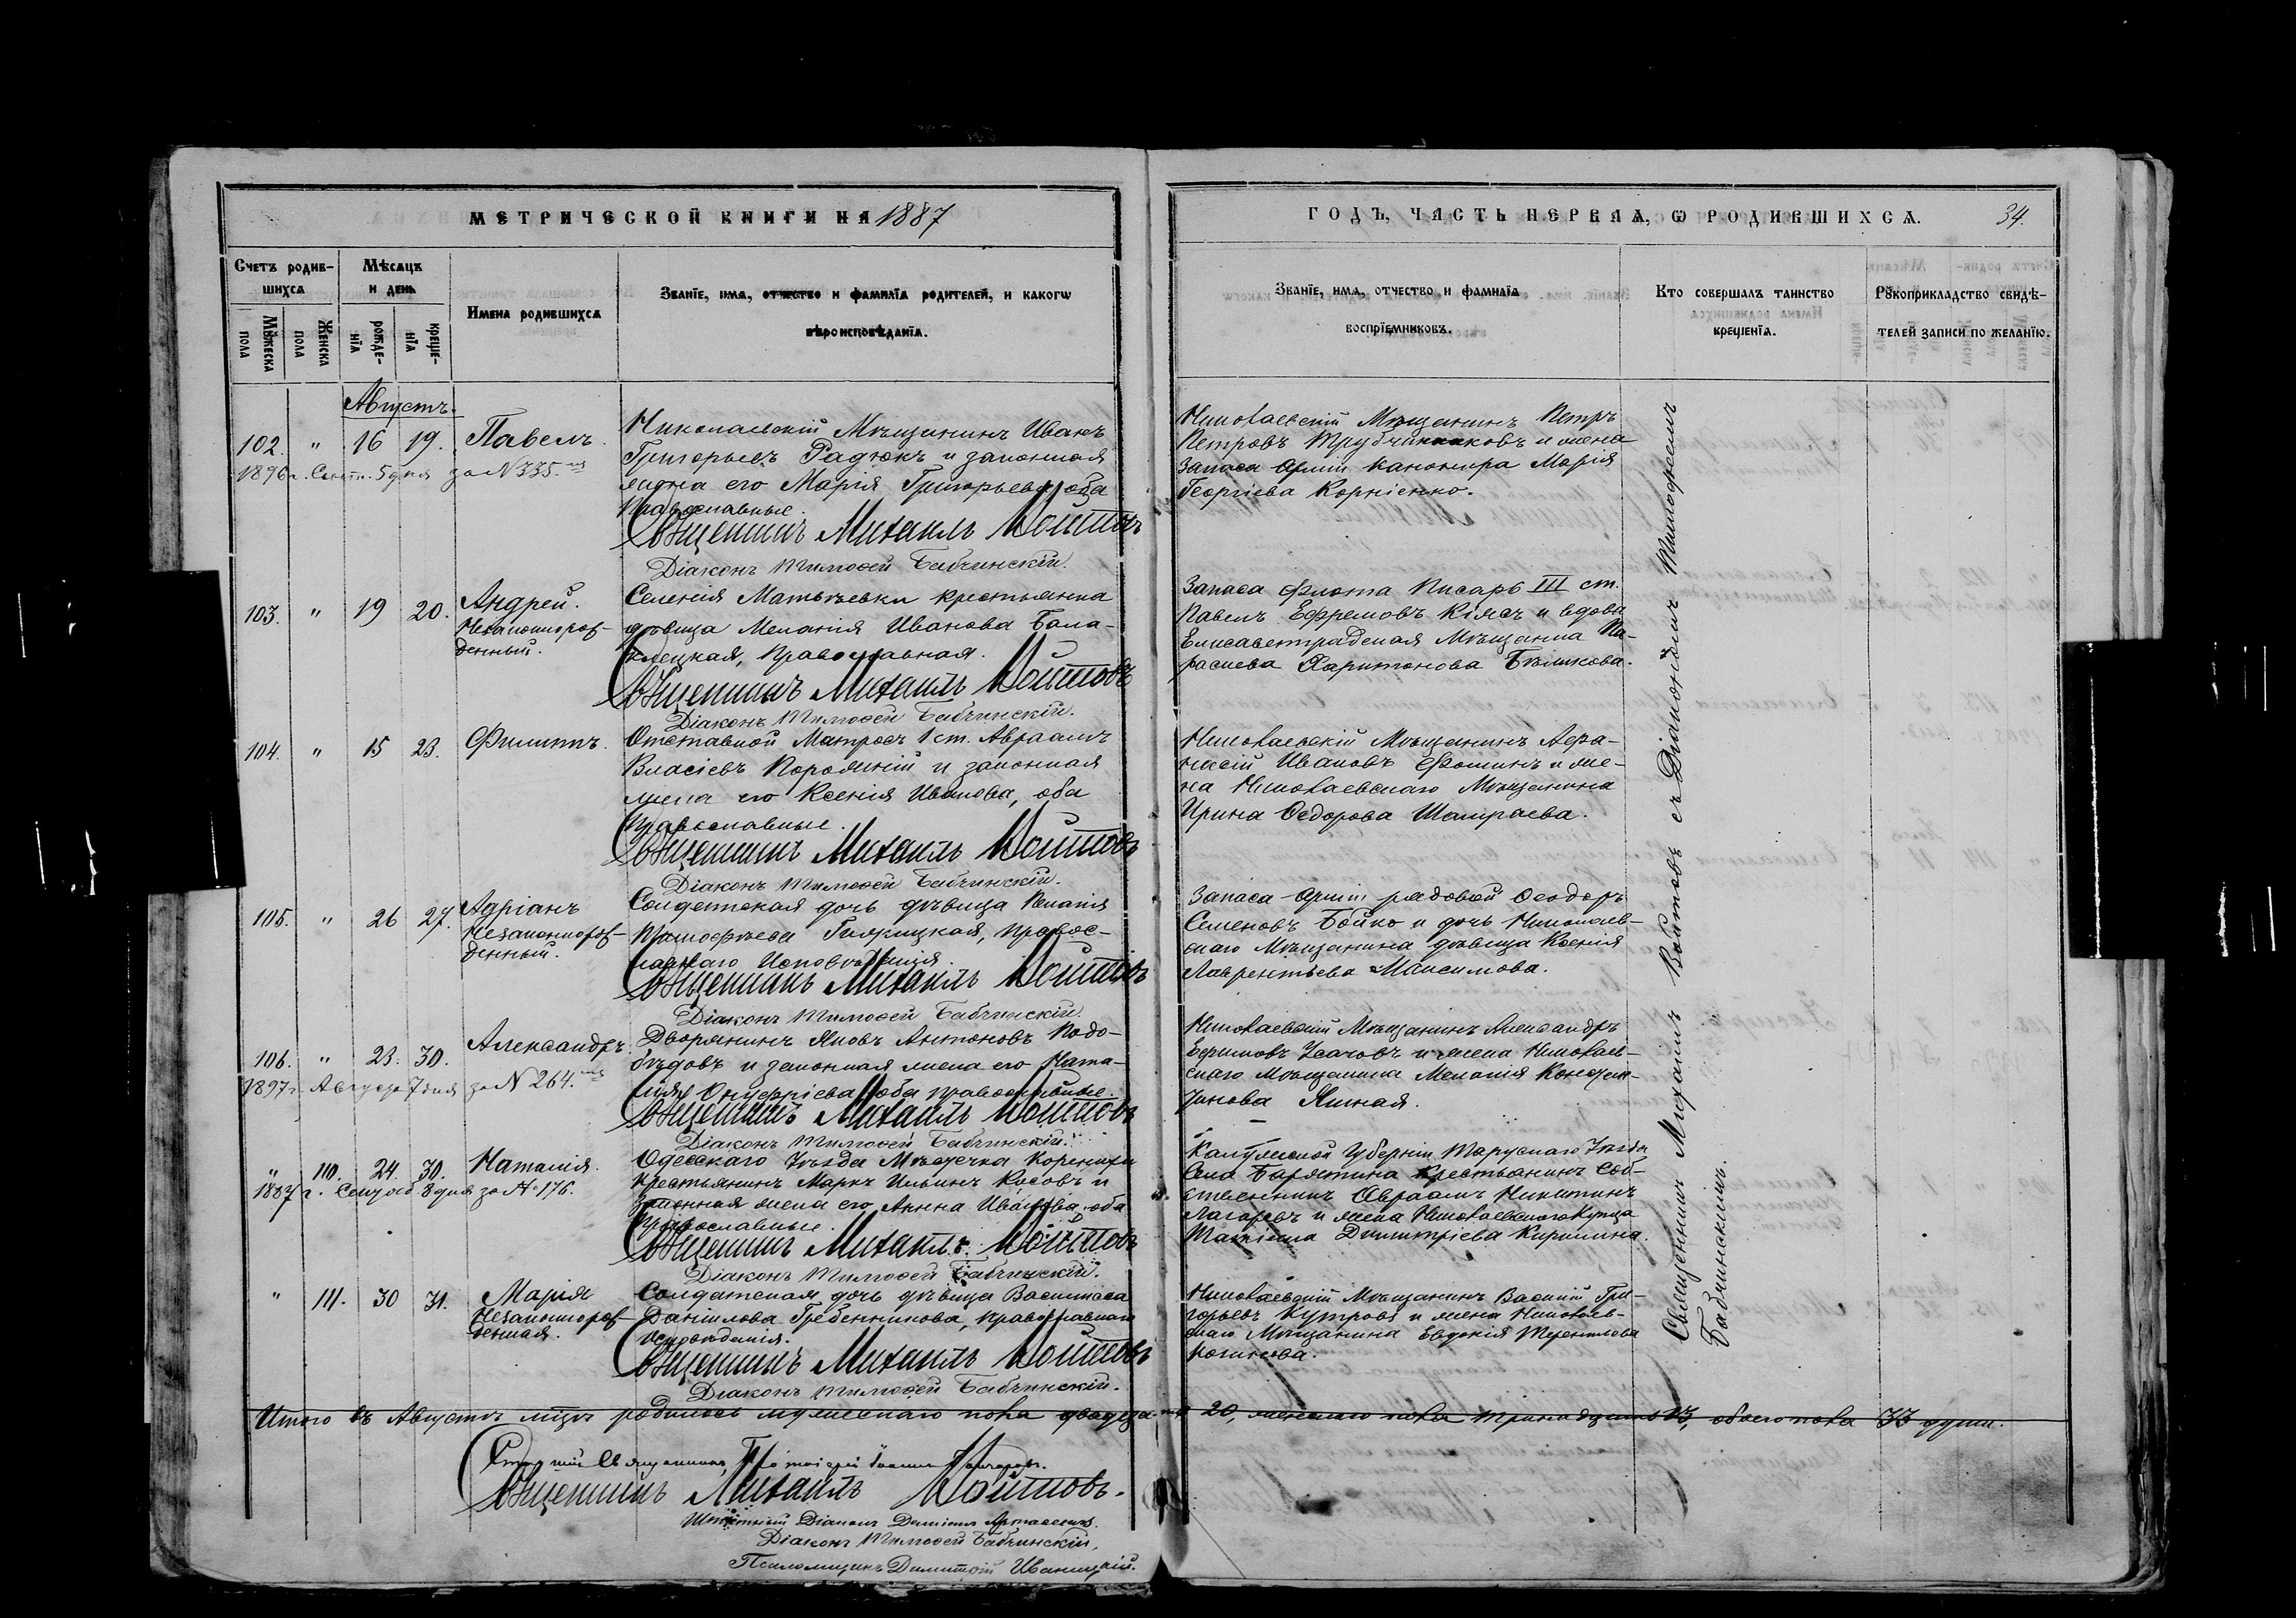 МЕТРИЧЕСКОЙ КНИГИ НА 1887
ГОДЪ, ЧАСТЬ ПЕРВАЯ, Ѡ РОДИВШИХСЯ. 34.
Счетъ родив-
шихся
Мѣсяцъ
и день
Имена родившихся
Званїе, имя, отчество и фамилїя родителей, и какогѡ
вѣроисповѣданїя.
Мꙋжеска
пола
Женска
пола
рожде-
нїя
креще-
нїя
Званїе, имя, отчество и фамилїя
воспрїемниковъ.
Кто совершалъ таинство
крещенїя.
Рꙋкоприкладство свидѣ-
телей записи по желанїю.
Августъ.
102. " 16 19. Павелъ.
1896 г. Сент. 5 дня за N 335.
Николаевскій Мѣщанинъ Иванъ
Григорьевъ Радюкъ и законная
жена его Марія Григорьева, оба
Православные.
Священникъ Михаилъ Войтовъ
Діаконъ Тимофей Бабчинскій.
Николаевскій Мѣщанинъ Петръ
Петровъ Трубчаниковъ и жена
Запаса Арміи канонира Марія
Георгіева Корніенко.
103. " 19 20. Андрей.
Незаконнорож-
денный.
Селенія Матвѣевки крестьянка
дѣвица Меланія Иванова Бала-
клецкая, Православная.
Священникъ Михаилъ Войтовъ
Діаконъ Тимофей Бабчинскій.
Запаса флота Писарь III ст.
Павелъ Ефремовъ Кіясъ и вдова
Елисаветградская Мѣщанка Па-
раскева Харитонова Бѣликова.
104. " 15 23. Филиппъ.
Отставной Матросъ 1 ст. Авраамъ
Власіевъ Порожній и законная
жена его Ксенія Иванова, оба
Православные.
Священникъ Михаилъ Войтовъ
Діаконъ Тимофей Бабчинскій.
Николаевскій Мѣщанинъ Афа-
насій Ивановъ Фоминъ и же-
на Николаевскаго Мѣщанина
Ирина Ѳедорова Шамраева.
105. " 26 27. Адріанъ
Незаконнорож-
денный.
Солдатская дочь дѣвица
Тимофѣева Православ-
наго Исповѣданія.
Священникъ Михаилъ Войтовъ
Діаконъ Тимофей Бабчинскій.
Запаса Арміи рядовой Ѳеодоръ
Семеновъ Бойко и дочь Николаев-
скаго Мѣщанина дѣвица Ксенія
Лаврентьева Максимова.
106. " 23. 30. Александръ.
1897 г. Августа 7 дня за N 264.
Дворянинъ Яковъ Антоновъ Подо-
бѣдовъ и законная жена его Ната-
лія Онуфріева, оба православные.
Священникъ Михаилъ Войтовъ
Діаконъ Тимофей Бабчинскій.
Николаевскій Мѣщанинъ Александръ
Ефимовъ Усачовъ и жена Николаев-
скаго Мѣщанина Меланія Констан-
тинова
" 110. 24. 30. Наталія.
1887 г. Сентяб. 8 дня за № 176.
Одесскаго Уѣзда Мѣстечка Коренихи
крестьянинъ Маркъ Ильинъ Косовъ и
законная жена его Анна Иванова, оба
Православные.
Священникъ Михаилъ Войтовъ
Діаконъ Тимофей Бабчинскій.
Калужской Губерніи Тарусскаго Уѣзда
Села Барятина Крестьянинъ соб-
ственникъ Авраамъ Никитинъ
Лагаревъ и жена Николаевскаго Купца
Татіана Димитріева Кирюшина.
" 111. 30 31. Марія
Незаконнорож-
денная.
Солдатская дочь дѣвица Василиса
Данилова Гребенникова, православнаго
исповѣданія.
Священникъ Михаилъ Войтовъ
Діаконъ Тимофей Бабчинскій.
Николаевскій Мѣщанинъ Василій Гри-
горьевъ Кутровъ и жена Николаев-
скаго Мѣщанина Евдокія Терентьева
Логинова.
Священникъ Михаилъ Войтовъ съ Діакономъ Тимофеемъ
Бабчинскимъ.
Итого въ Августѣ мѣсяцѣ родилось мужескаго пола двадцать 20, женскаго пола тринадцать 13, обоего пола 33 души.
Старшій Священникъ, Протоіерей
Священникъ Михаилъ Войтовъ.
Штатный Діаконъ
Діаконъ Тимофей Бабчинскій,
Псаломщикъ Димитрій Иваницкій.